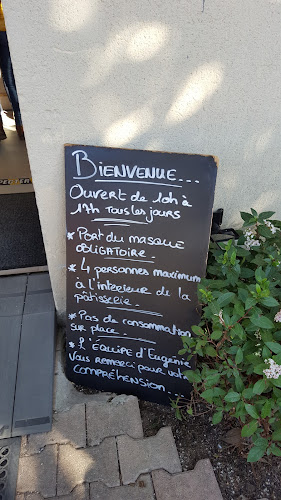 Bienvenue...
Ouvert de 10h à
17h Tous les jours
* Port du masque
obligatoire.
* 4 personnes maximum
à l'intérieur de la
pâtisserie.
* Pas de consommation
sur place.
* L'équipe d'Eugénie
Vous remercie pour votre
compréhension...